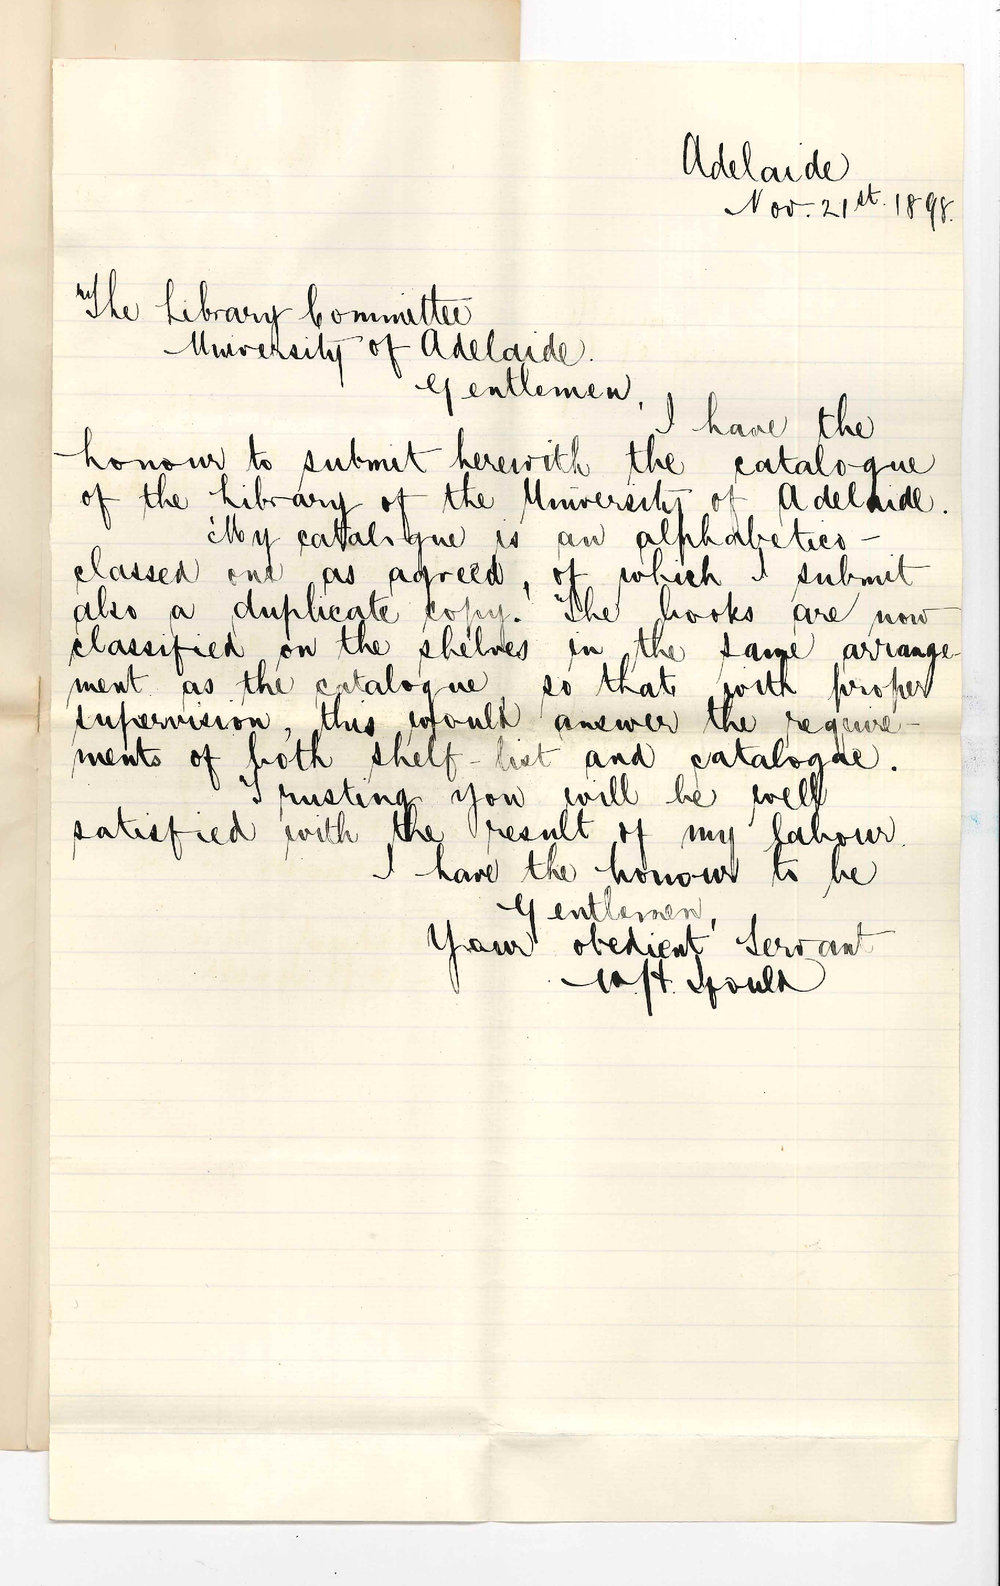 Adelaide
Nov. 21st. 1898.
The Library Committee
University of Adelaide.
Gentlemen,
I have the
honour to submit herewith the catalogue
of the Library of the University of Adelaide.
My catalogue is an alphabetico-
classed one as agreed, of which I submit
also a duplicate copy. The books are now
classified on the shelves in the same arrange-
ment as the catalogue, so that with proper
supervision, this would answer the require-
ments of both shelf-list and catalogue.
Trusting you will be well
satisfied with the result of my labour.
I have the honour to be
Gentlemen,
Your obedient Servant
W.H. Ifould